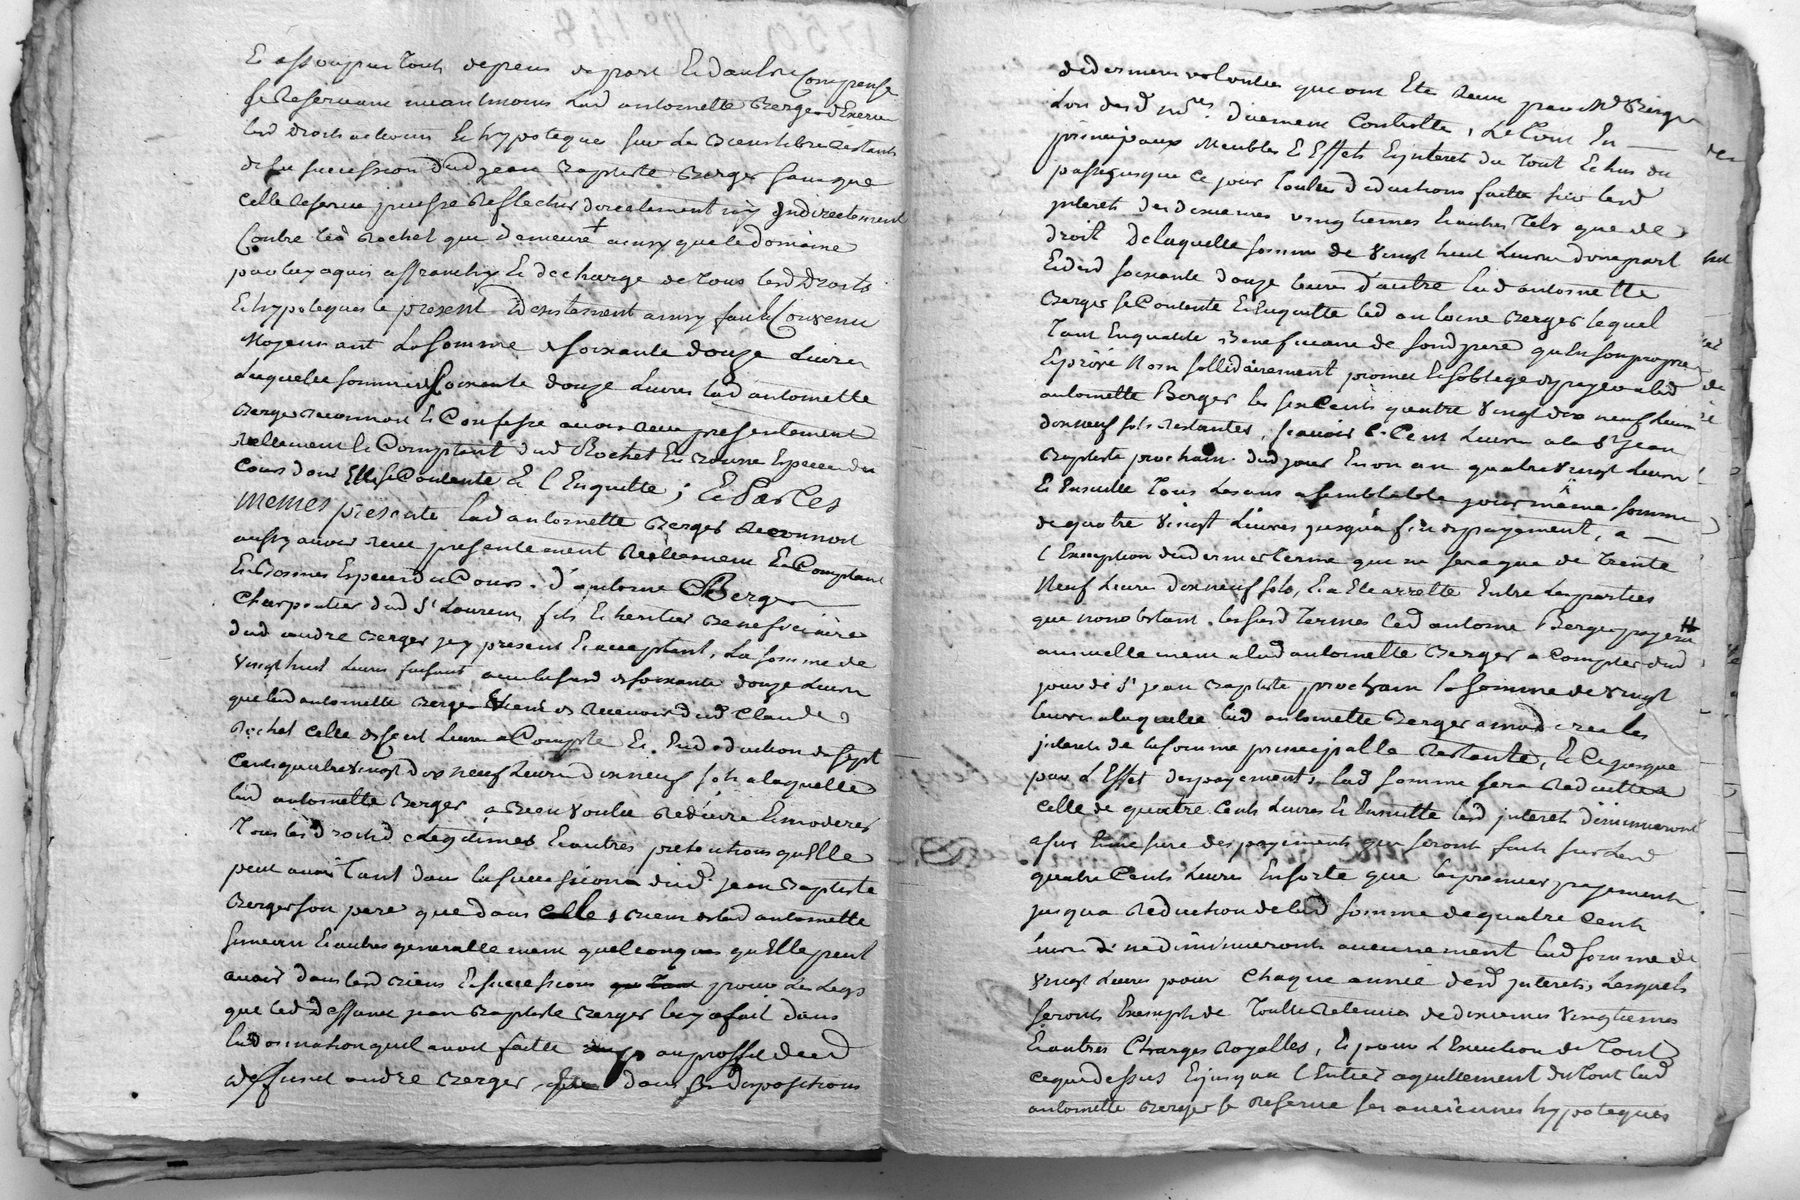 Et assoupir touts depens de part Et daultre Compense
se Reservant neantmoins Lad antoinette Berger dexercer
lesd droits actions Et hypoteques sur Les Biens libres restants
de la succession dud jean Baptiste Berger sans que
celle Reserve puisse Reflechir directement ny Indirectement
Contre led Rochet qui demeure + ainsy que le domaine
par luy aquis affranchy Et decharge de tous lesd droits
Et hypoteques le present desistement ainsy fait Et Convenu
Moyennant La somme de soixante douze Livres
Laquelle somme de soixante douze Livres lad antoinette
Berger Reconnoit Et Confesse avoir Receu presentement
réllement Et Comptant dud Rochet En Bonne Espece du
Cours dont Elle se Contente Et l'Enquitte ; Et Par Les
memes présente lad antoinette Berger Reconnoit
aussy avoir receu presentement Reellement Et Comptant
En Bonnes Especes du Cours. d'antoine Berger
Charpentier dud St Laurent, fils Et heritier Beneficiaire
dud andre Berger icy present Et acceptant, La somme de
vingt huit Livres faisant avec lesd soixante douze Livres
que lad antoinette Berger vient de Recevoir dud Claude
Rochet celle de Cent Livres a Compte Et En deduction de sept
Cents quatre vingt dix neuf Livres dix neuf sols a laquelle
lad antoinette Berger a Bien voulu Reduire Et moderer
Tous lesd droits Legitimes Et autres pretentions qu'Elle
peut avoir Tant dans la succession dud. jean Baptiste
Berger son pere que dans celle & Biens de lad antoinette
Et autres generallement quelconques qu'Elle peut
avoir dans lesd Biens Et successions pour Les Legs
que led deffunt jean Baptiste Berger luy a fait dans
la donnation quil avoit faitte au proffit dud
deffunt andre Berger dans ses dispositions
de derniere volonté qui ont Eté Receu par Md
Lors desd nres. duement Controlle, Le Tout En
principaux Meubles Et Effets Et interets du Tout Echus du
passé jusque ce jour Toutes deductions faitte sur lesd
interets des dixiemes vingtiemes Et autres Tels que de
droit de laquelle somme de vingt huit Livres d'une part
Et desd soixante douze Livres d'autre lad antoinette
Berger se Contente Et Enquitte led antoine Berger lequel
Tant En qualité Beneficiaire de sond pere qu'En son propre
Et privé Nom sollidairement promet Et soblege de payer a lad
antoinette Berger les six Cents quatre vingt dix neuf Livres
dix neuf sols restantes, scavoir Cent Livres a la St Jean
Baptiste prochain. dud jour En un an quatre vingt Livres
Et Ensuitte Tous Les ans a semblable jour même somme
de quatre vingt Livres jusqu'a fin de payement, a
l'Exception du dernier Terme qui ne sera que de Trente
Neuf Livres dix neuf sols, Et a Eté arretté Entre Les parties
que nonobstant les susd Termes led antoine Berger payera
annuellement a lad antoinette Berger a Compter dud
jour de St jean Baptiste prochain la somme de vingt
Livres a laquelle lad antoinette Berger a moderé les
interets de la somme principalle Restante, Et Ce jusque
par l'Effet des payements lad somme sera Reduitte a
celle de quatre Cents Livres Et Ensuitte lesd interets diminueront
a fur Et mesure des payements qui seront faits sur lesd
quatre Cents Livres En sorte que les premiers payements
jusqua Reduction de lad somme de quatre Cents
Livres ne diminueront aucunement lad somme de
vingt Livres pour Chaque année desd interets, Lesquels
seront Exempts de Toutte Retenue de dixiemes vingtiemes
Et autres Charges Royalles, Et pour l'Execution de Tout
ce que dessus Et jusqu'a l'Entier aquittement du Tout lad
antoinette Berger se Reserve ses anciennes hypoteques